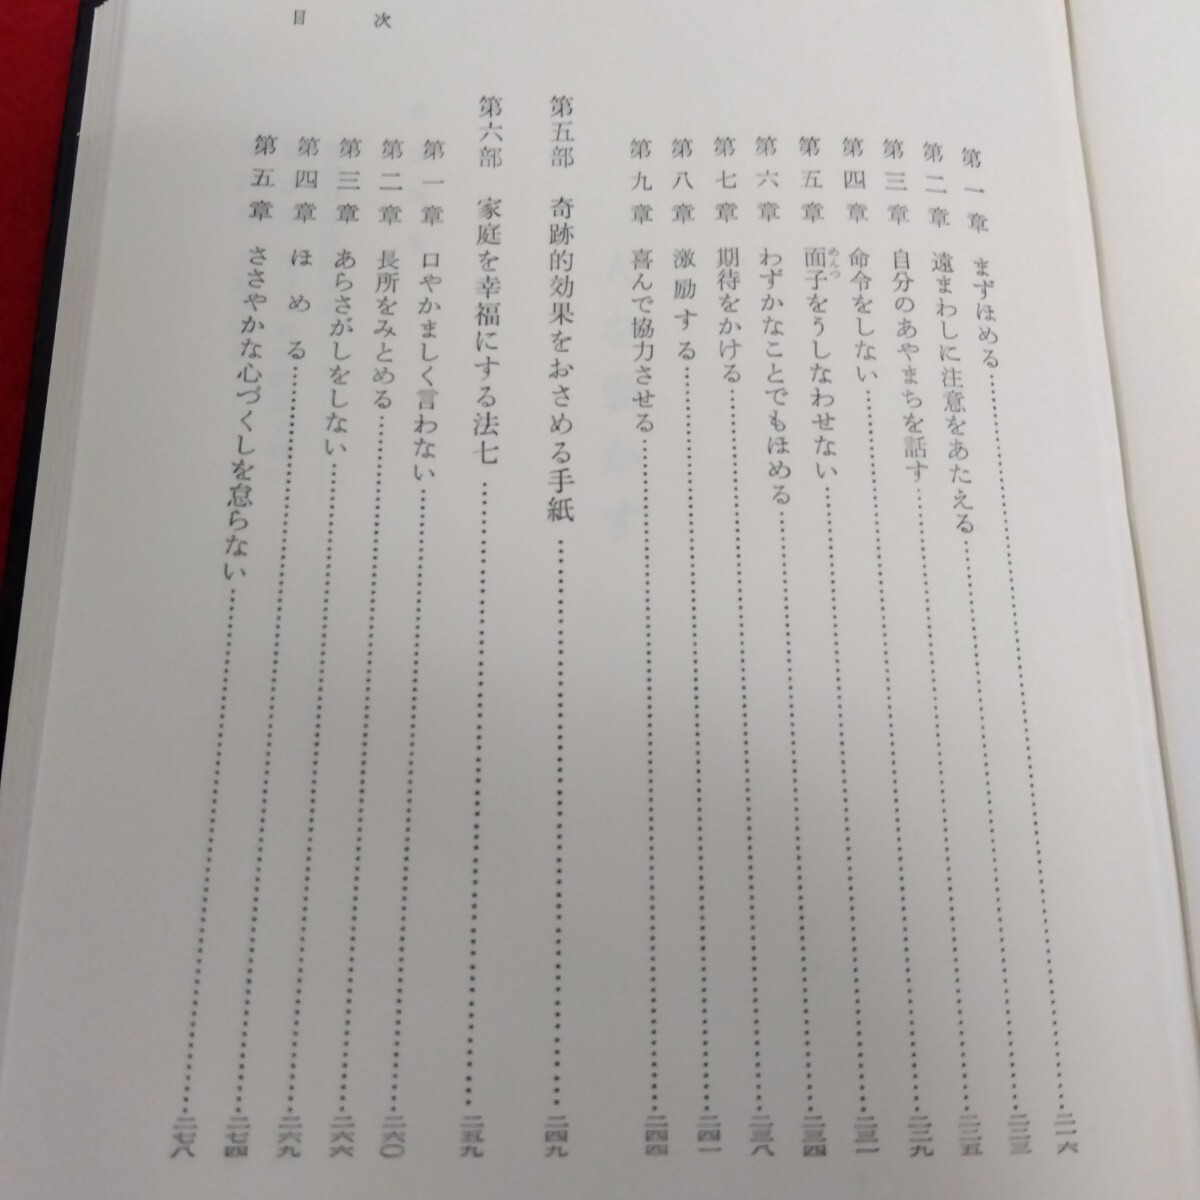 目 次
第一章 まずほめる……二一六
第二章 遠まわしに注意をあたえる……二二三
第三章 自分のあやまちを話す……二二五
第四章 命令をしない……二二九
第五章 面子をうしなわせない……二三一
めんつ
第六章 わずかなことでもほめる……二三四
第七章 期待をかける……二三八
第八章 激励する……二四一
第九章 喜んで協力させる……二四四
第五部 奇跡的効果をおさめる手紙……二四九
第六部 家庭を幸福にする法七……二五九
第一章 口やかましく言わない……二六〇
第二章 長所をみとめる……二六六
第三章 あらさがしをしない……二六九
第四章 ほめる……二七四
第五章 ささやかな心づくしを怠らない……二七八